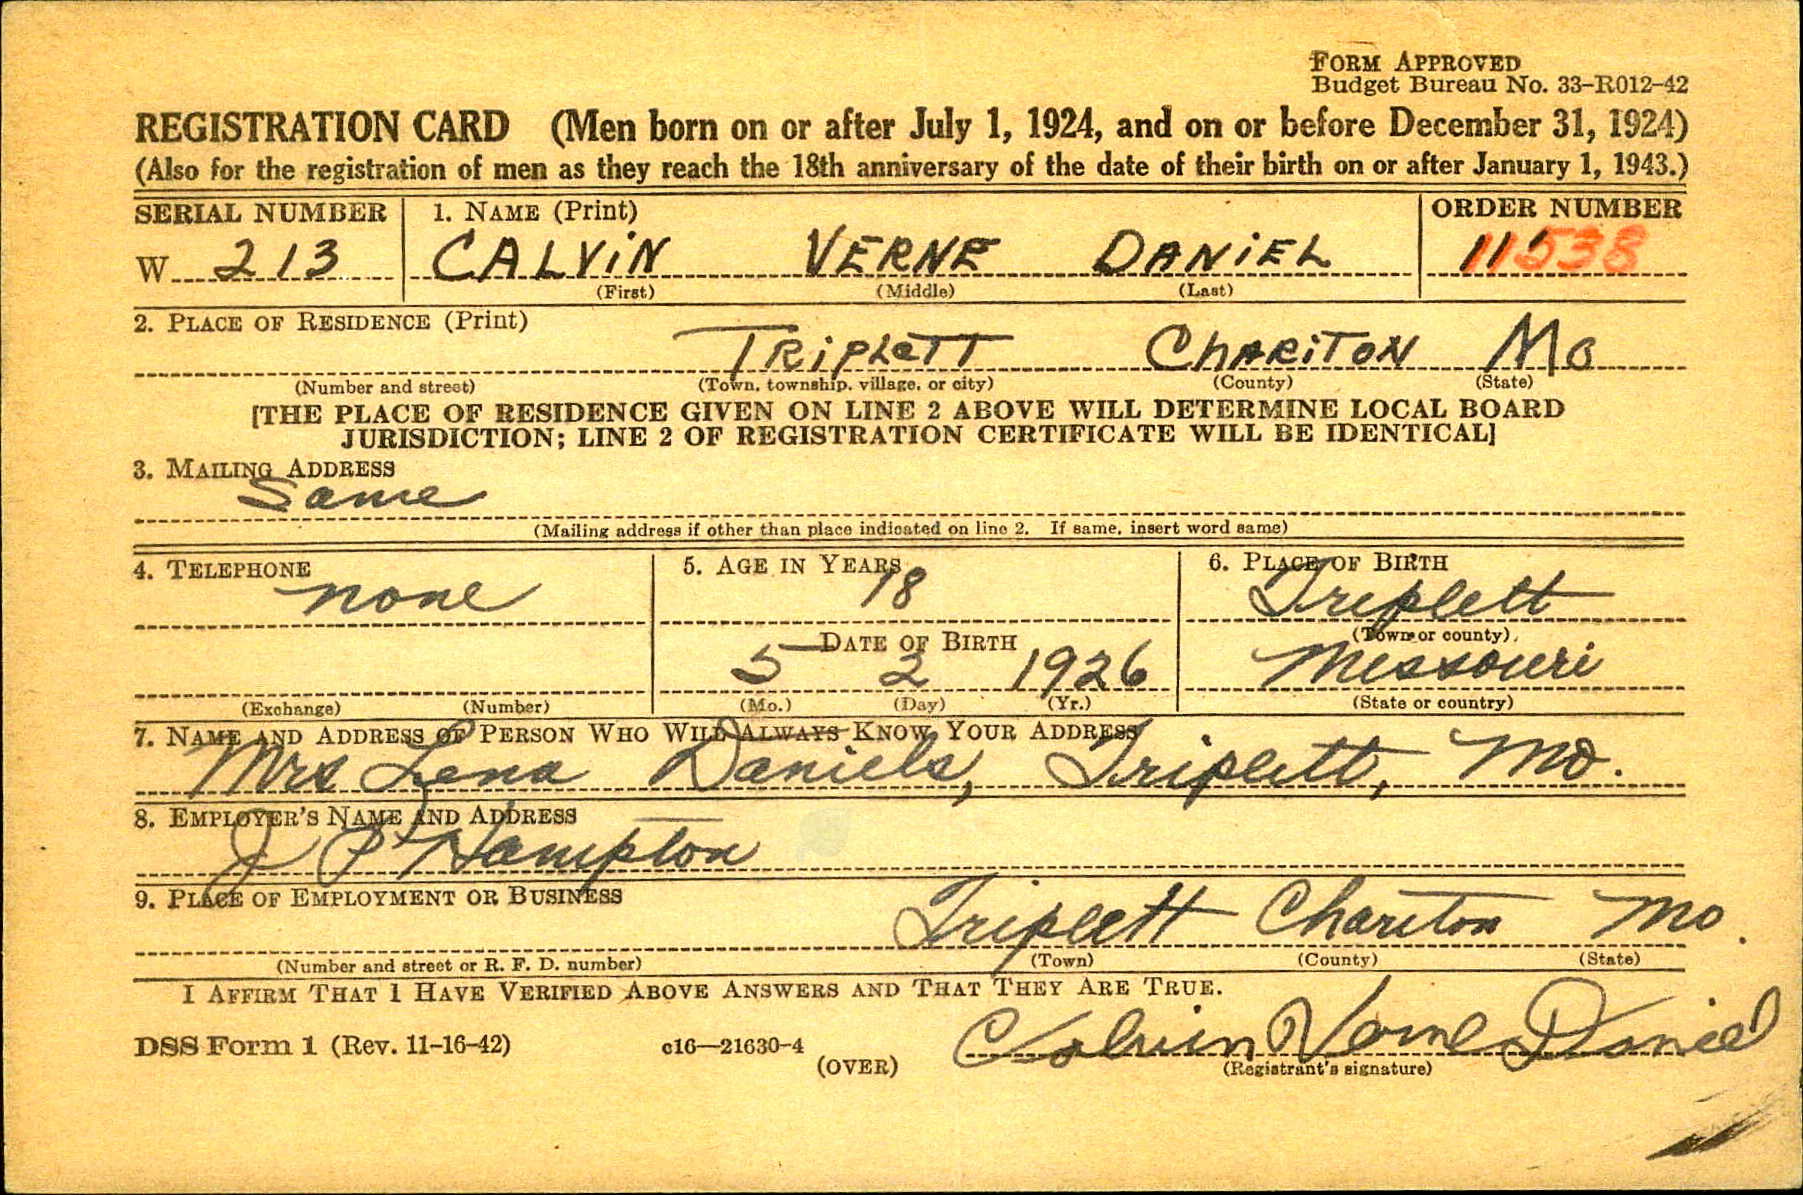 FORM APPROVED
Budget Bureau No. 33-R012-42
REGISTRATION CARD (Men born on or after July 1, 1924, and on or before December 31, 1924)
(Also for the registration of men as they reach the 18th anniversary of the date of their birth on or after January 1, 1943.)
SERIAL NUMBER 1. NAME (Print) ORDER NUMBER
W 213 CALViN VERNE DANiEL 11538
(First) (Middle) (Last)
2. PLACE OF RESIDENCE (Print)
TRiPLeTT ChARiTON Mo
(Number and street) (Town, township, village, or city) (County) (State)
[THE PLACE OF RESIDENCE GIVEN ON LINE 2 ABOVE WILL DETERMINE LOCAL BOARD
JURISDICTION; LINE 2 OF REGISTRATION CERTIFICATE WILL BE IDENTICAL]
3. MAILING ADDRESS
Same
(Mailing address if other than place indicated on line 2. If same, insert word same)
4. TELEPHONE 5. AGE IN YEARS 6. PLACE OF BIRTH
none 18 Triplett
DATE OF BIRTH (Town or county)
5 2 1926 Missouri
(Exchange) (Number) (Mo.) (Day) (Yr.) (State or country)
7. NAME AND ADDRESS OF PERSON WHO WILL ALWAYS KNOW YOUR ADDRESS
Mrs Lena Daniels, Triplett, Mo.
8. EMPLOYER'S NAME AND ADDRESS
J P Hampton
9. PLACE OF EMPLOYMENT OR BUSINESS
Triplett Chariton Mo.
(Number and street or R. F. D. number) (Town) (County) (State)
I AFFIRM THAT I HAVE VERIFIED ABOVE ANSWERS AND THAT THEY ARE TRUE.
DSS Form 1 (Rev. 11-16-42) c16—21630-4 (OVER) Calvin Verne Daniel
(Registrant's signature)